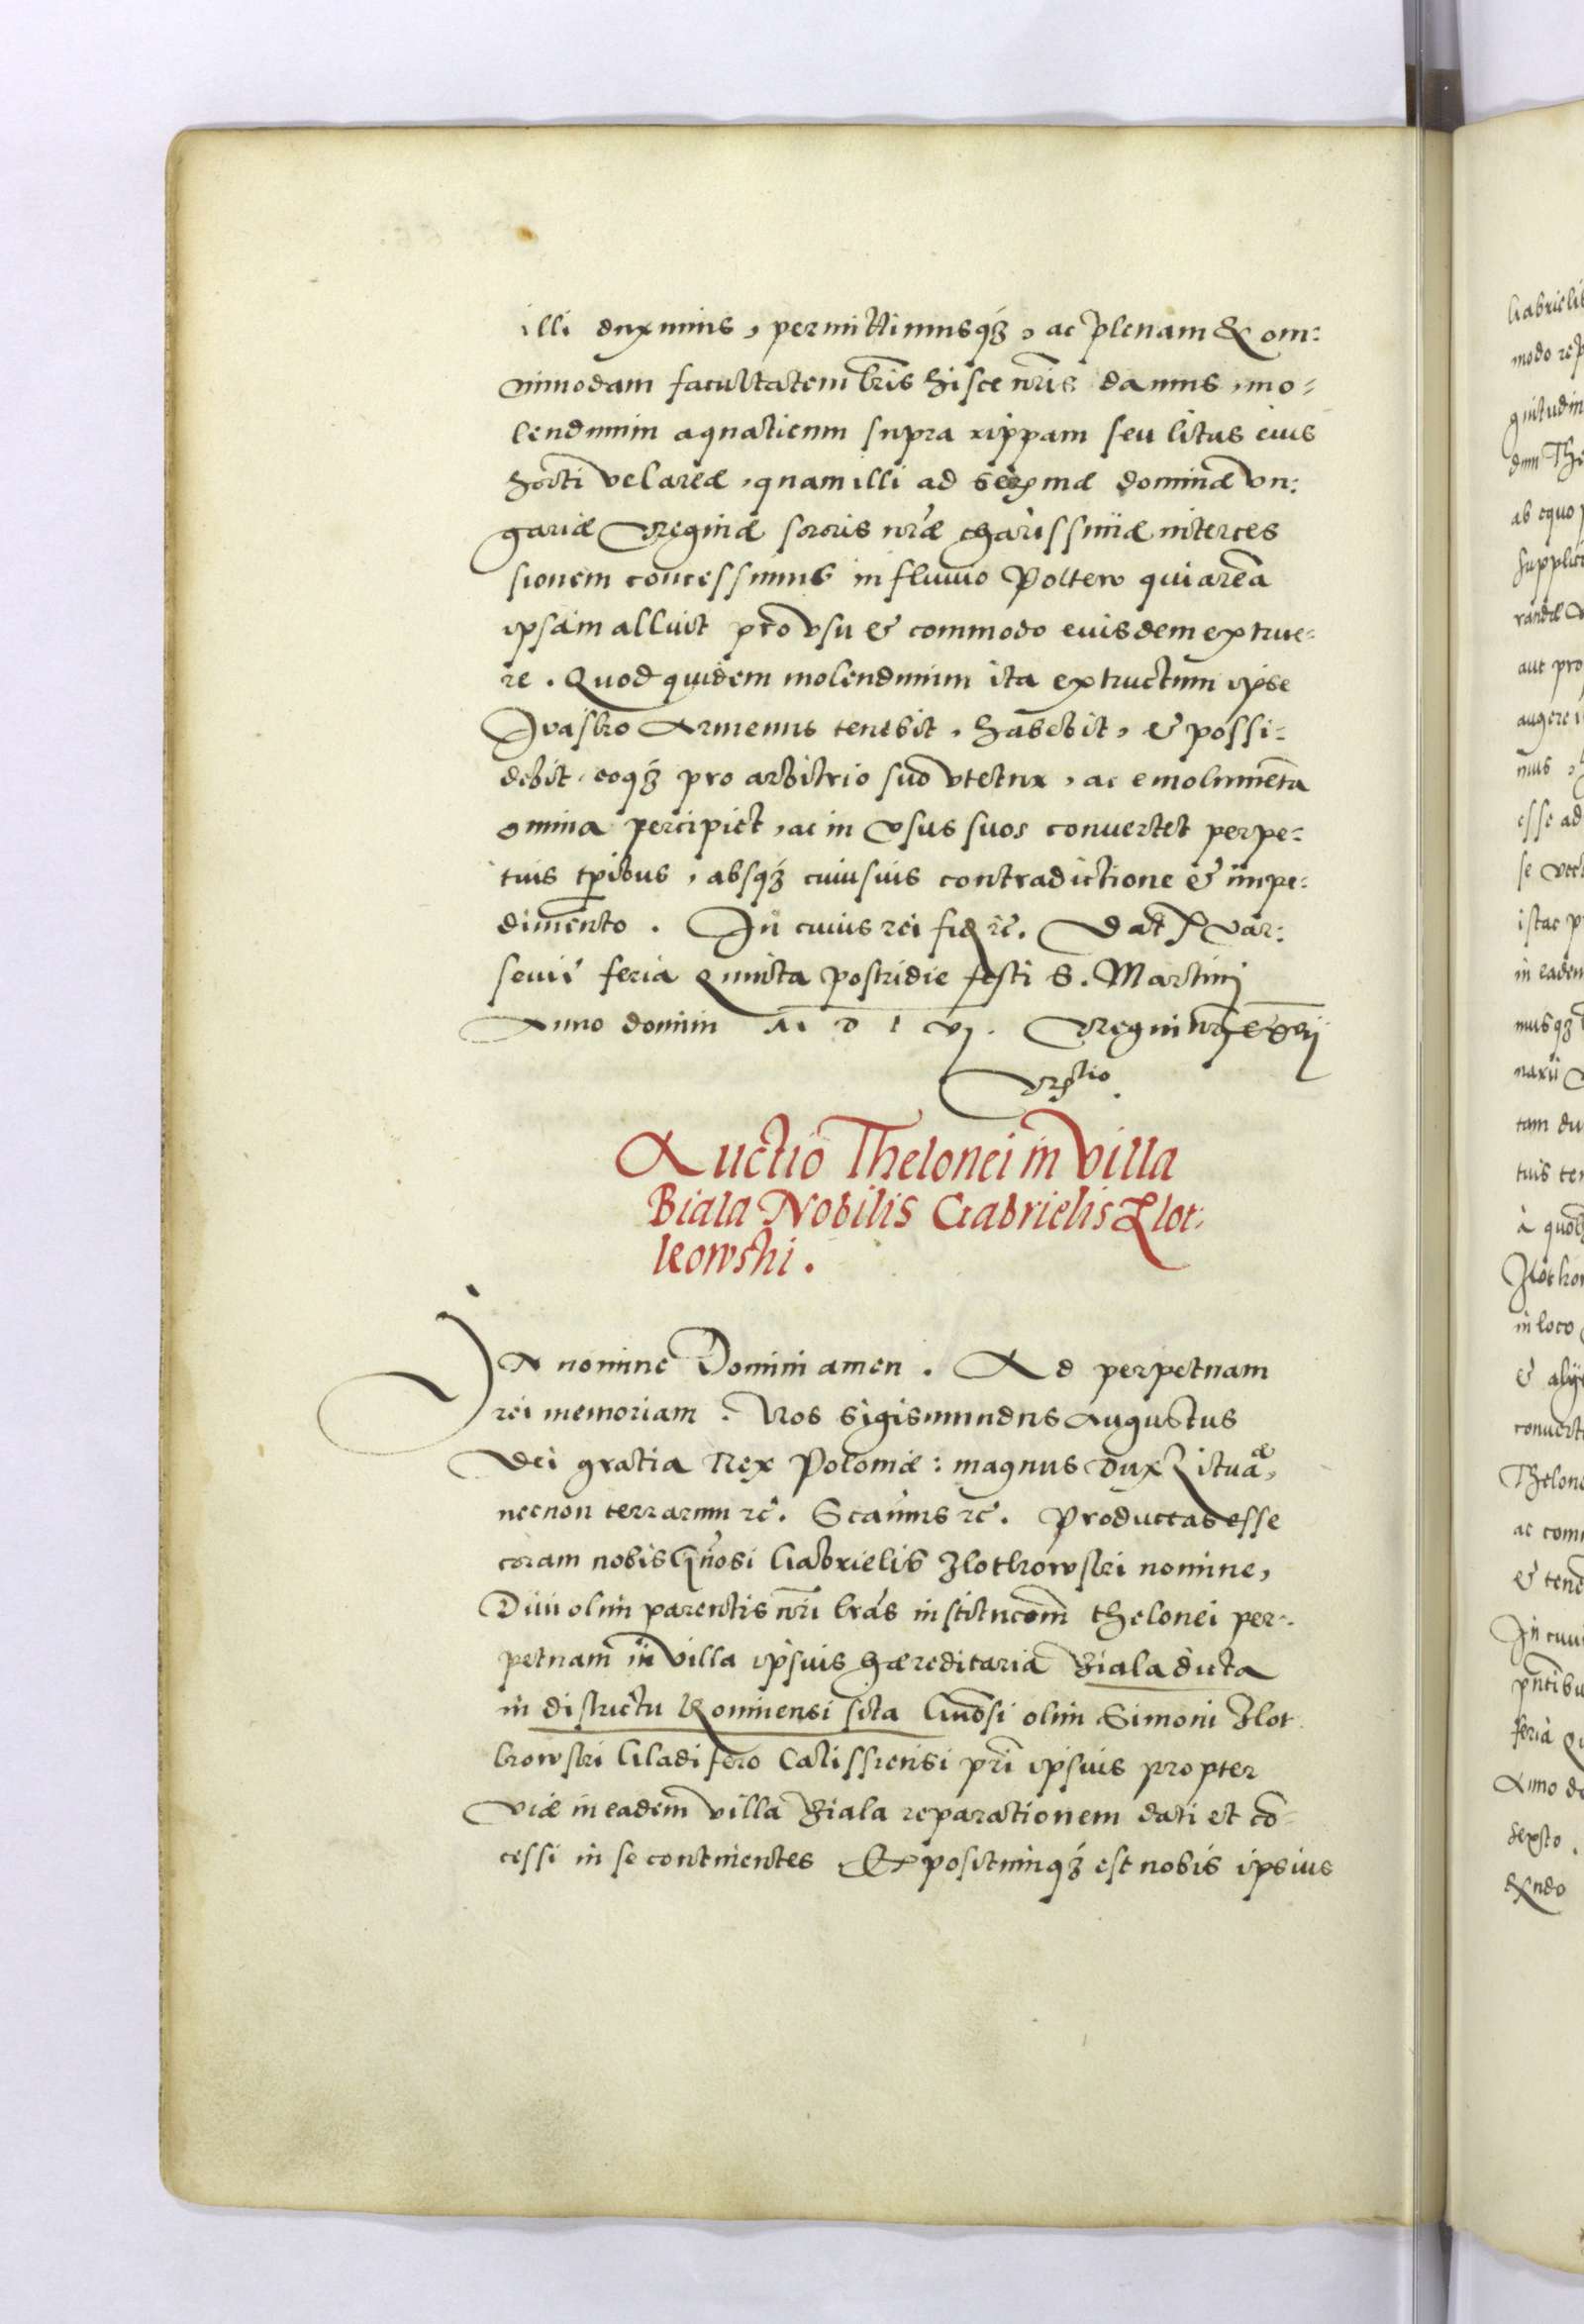 illi duximus, permittimusq3, ac plenam & om:
nimodam facultatem lr̃is hisce nr̃is damus, mo-
lendinum aquaticum supra rippam seu litus eius
horti vel areæ, quam illi ad Serẽmæ dominæ Vn:
gariæ Reginæ sororis nr̃æ charissimæ interces
sionem concessimus in fluuio Poltew qui areã
ipsam alluit pro vsu & commodo eiusdem extrue-
re. Quod quidem molendinum ita extructum ipse
Iuasko Armenus tenebit, habebit, & possi-
debit, eoq3 pro arbitrio suo vtetur, ac emolumẽta
omnia percipiet, ac in vsus suos conuertet perpe-
tuis tp̃ibus, absq3 cuiusuis contradictione & impe-
dimento. In cuius rei fid rc̃. Dat Var:
souiæ feria Quinta postridie festi S. Martini
Anno domini M D L Vj. Regni nr̃j
Auctio Thelonei in villa
Biala Nobilis Gabrielis Zlot:
kowski.
In nomine Domini amen. Ad perpetuam
rei memoriam. Nos Sigismundus Augustus
Dei gratia Rex Poloniæ: magnus Dux Lituã æ,
necnon terrarum rc̃. Scimus rc̃. Productas esse
coram nobis Gñosi Gabrielis Zlotkowski nomine,
Diui olim parentis nr̃i lr̃as institucõm thelonei per-
petuam in villa ipsius hæreditaria Biala dicta
in districtu Koninensi sita Gñosi olim Simoni Zlot
kowski Gladifero Calissiensi pr̃i ipsius propter
viæ in eadem villa Biala reparationem dati et cõ-
cessi in se continentes. Expositumq3 est nobis ipsius
Gabrielis
modo rep
gnitudin
dum The
ab equo p
supplica
randæ v
aut pro
augere
mus,
esse ad
se vect
istac p
in eadem
musq3
narii
tam du
tuis te
à quob
Zlotkow
in loco
& alijs
conuerte
Thelone
ac com
& tene
In cuius
pñtibu
feria Qu
Anno do
sexto.